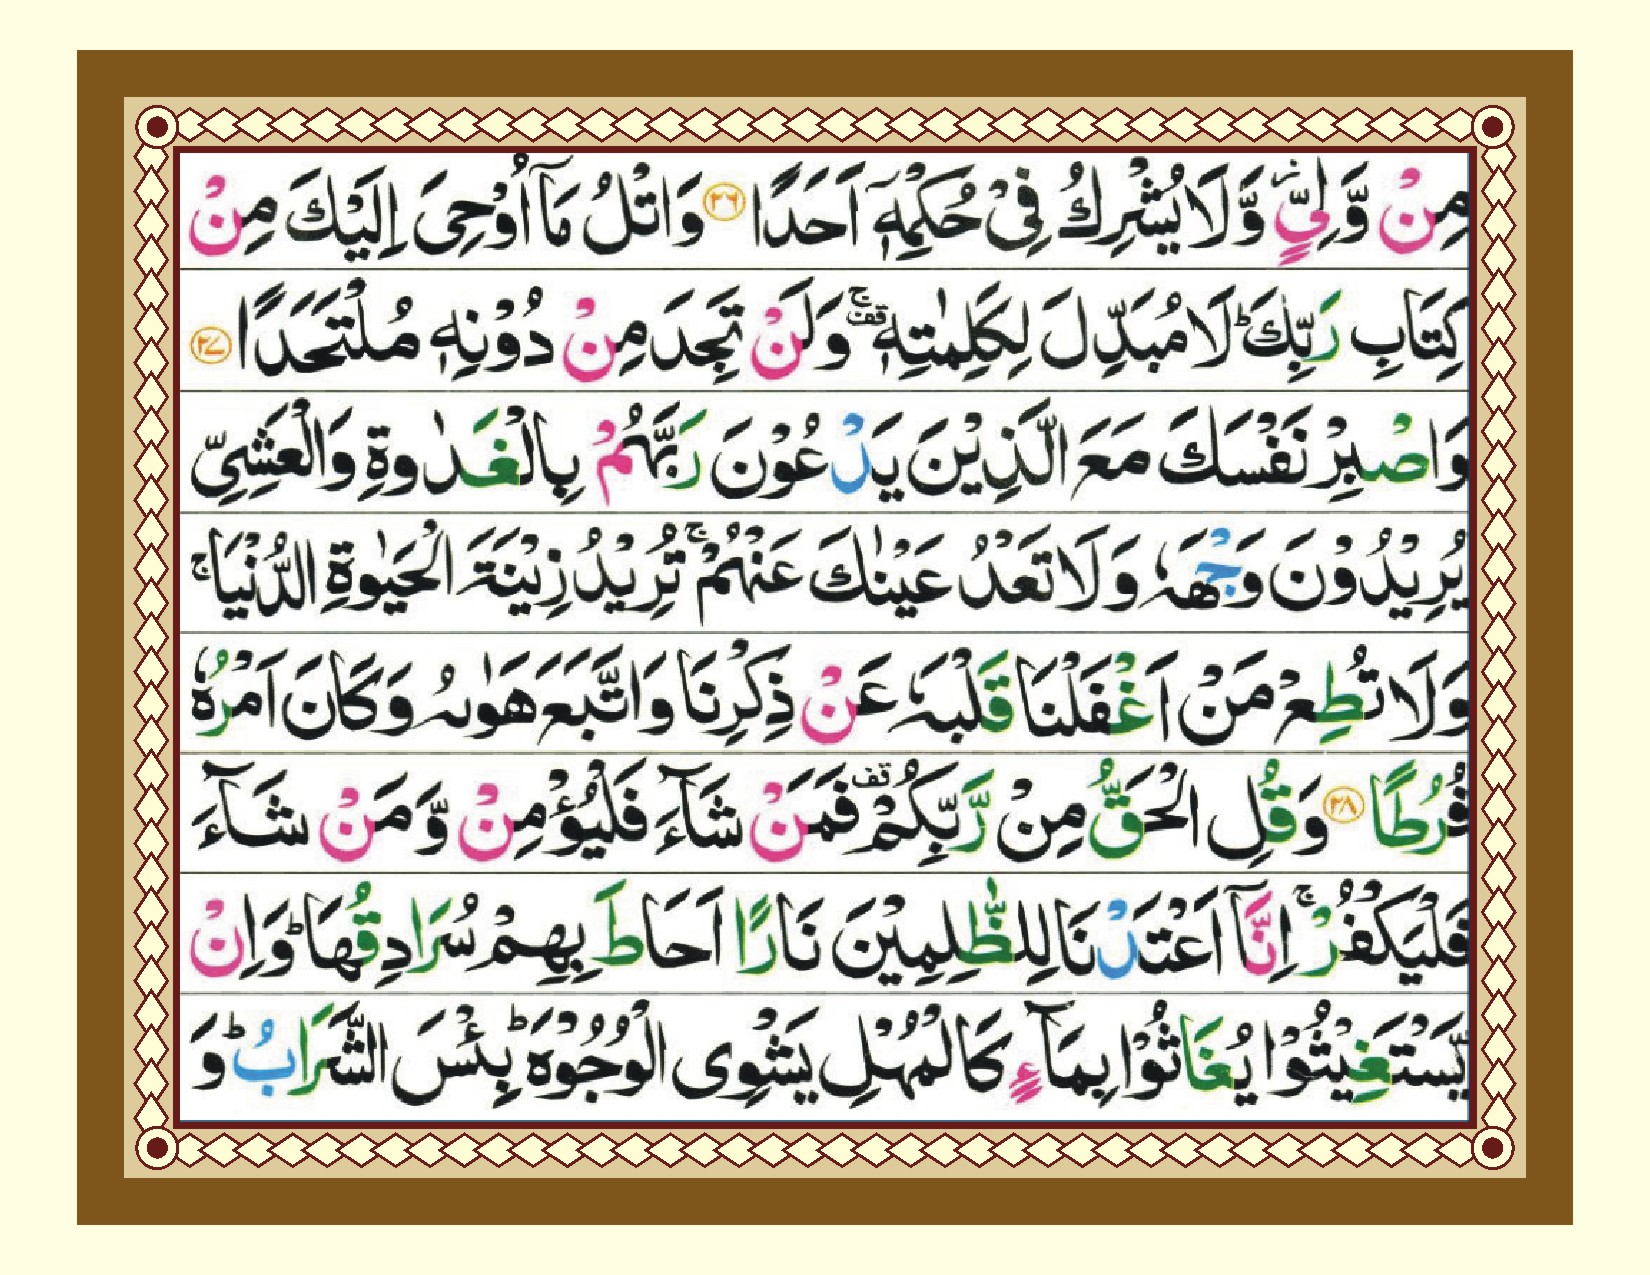 مِنْ وَّلِيٍّ ؗ وَّلَا يُشْرِكُ فِىْ حُكْمِهٖۤ اَحَدًا ﴿۲۶﴾ وَاتْلُ مَاۤ اُوْحِىَ اِلَيْكَ مِنْ
كِتَابِ رَبِّكَ ؕ لَا مُبَدِّلَ لِكَلِمٰتِهٖ ۚ قف وَلَنْ تَجِدَ مِنْ دُوْنِهٖ مُلْتَحَدًا ﴿۲۷﴾
وَاصْبِرْ نَفْسَكَ مَعَ الَّذِيْنَ يَدْعُوْنَ رَبَّهُمْ بِالْغَدٰوةِ وَالْعَشِىِّ
يُرِيْدُوْنَ وَجْهَهٗ وَلَا تَعْدُ عَيْنٰكَ عَنْهُمْ ۚ تُرِيْدُ زِيْنَةَ الْحَيٰوةِ الدُّنْيَا ۚ
وَلَا تُطِعْ مَنْ اَغْفَلْنَا قَلْبَهٗ عَنْ ذِكْرِنَا وَاتَّبَعَ هَوٰىهُ وَكَانَ اَمْرُهٗ
فُرُطًا ﴿۲۸﴾ وَقُلِ الْحَقُّ مِنْ رَّبِّكُمْ قف فَمَنْ شَآءَ فَلْيُؤْمِنْ وَّمَنْ شَآءَ
فَلْيَكْفُرْ ۚ اِنَّاۤ اَعْتَدْنَا لِلظّٰلِمِيْنَ نَارًا اَحَاطَ بِهِمْ سُرَادِقُهَا ؕ وَاِنْ
يَّسْتَغِيْثُوْا يُغَاثُوْا بِمَآءٍ كَالْمُهْلِ يَشْوِى الْوُجُوْهَ ؕ بِئْسَ الشَّرَابُ ؕ وَ